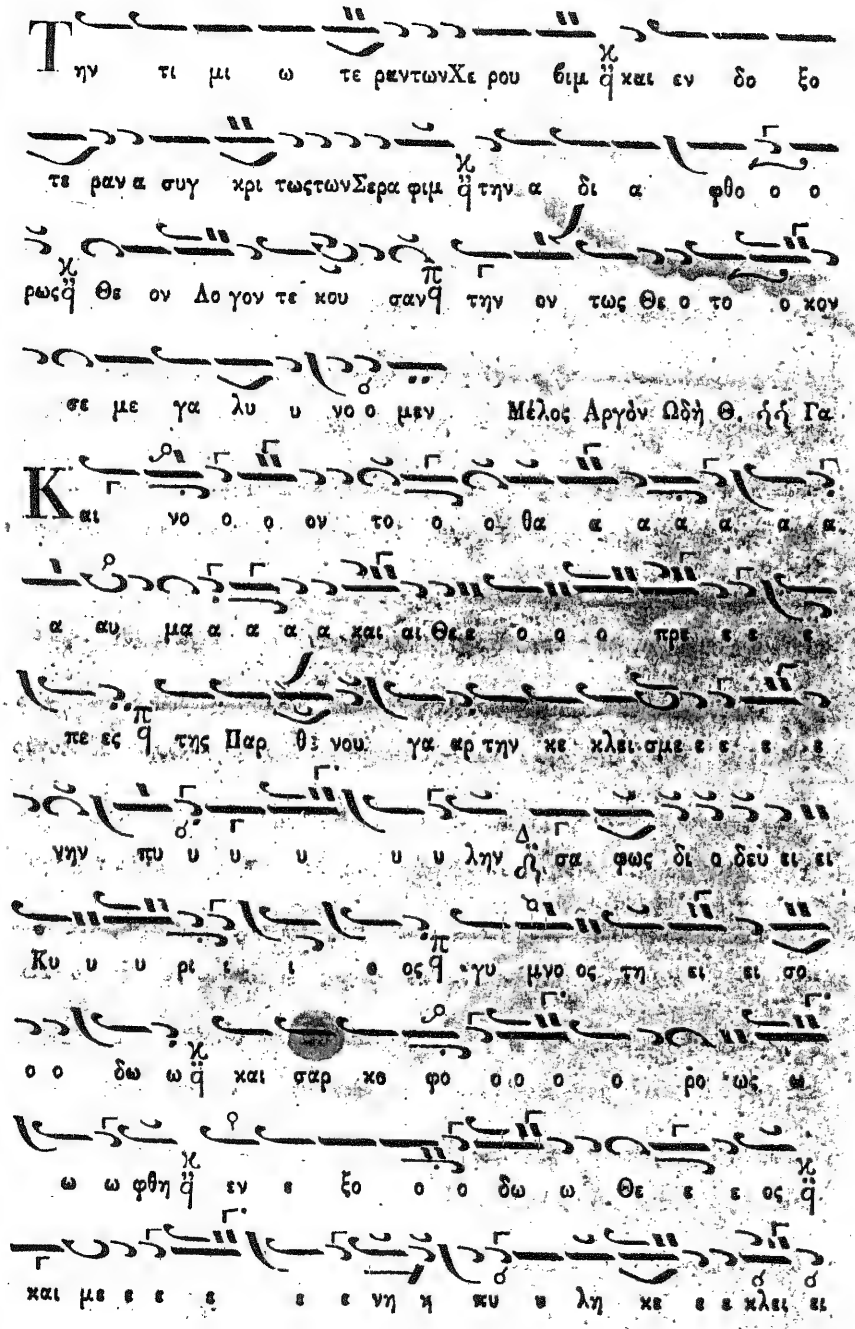 Την τι μι ω τε ραν των Χε ρου βιμ και εν δο ξο
τε ραν α συγ κρι τως των Σε ρα φιμ την α δι α φθο ο ο
ρως Θε ον Λο γον τε κου σαν την ον τως Θε ο το ο κον
σε με γα λυ υ νο ο μεν Μέλος Αργὸν Ωδὴ Θ. ἡ ἡ Γα
Και νο ο ο ον το ο ο θα α α α α α α
α αυ μα α α α α και αι Θε ε ο ο ο πρε ε ε ε
πε ες της Παρ θε νου γα αρ την κε κλει σμε ε ε ε ε
νην πυ υ υ υ υ υ λην σα φως δι ο δεύ ει ει
Κυ υ υ ρι ι ι ο ος γυ μνο ος τη ει ει σο
ο ο δω ω και σαρ κο φο ο ο ο ο ρο ως ω
ω ω φθη εν ε ξο ο ο δω ω Θε ε ε ος
και με ε ε ε ε ε νη η πυ υ λη κε ε ε κλει ει